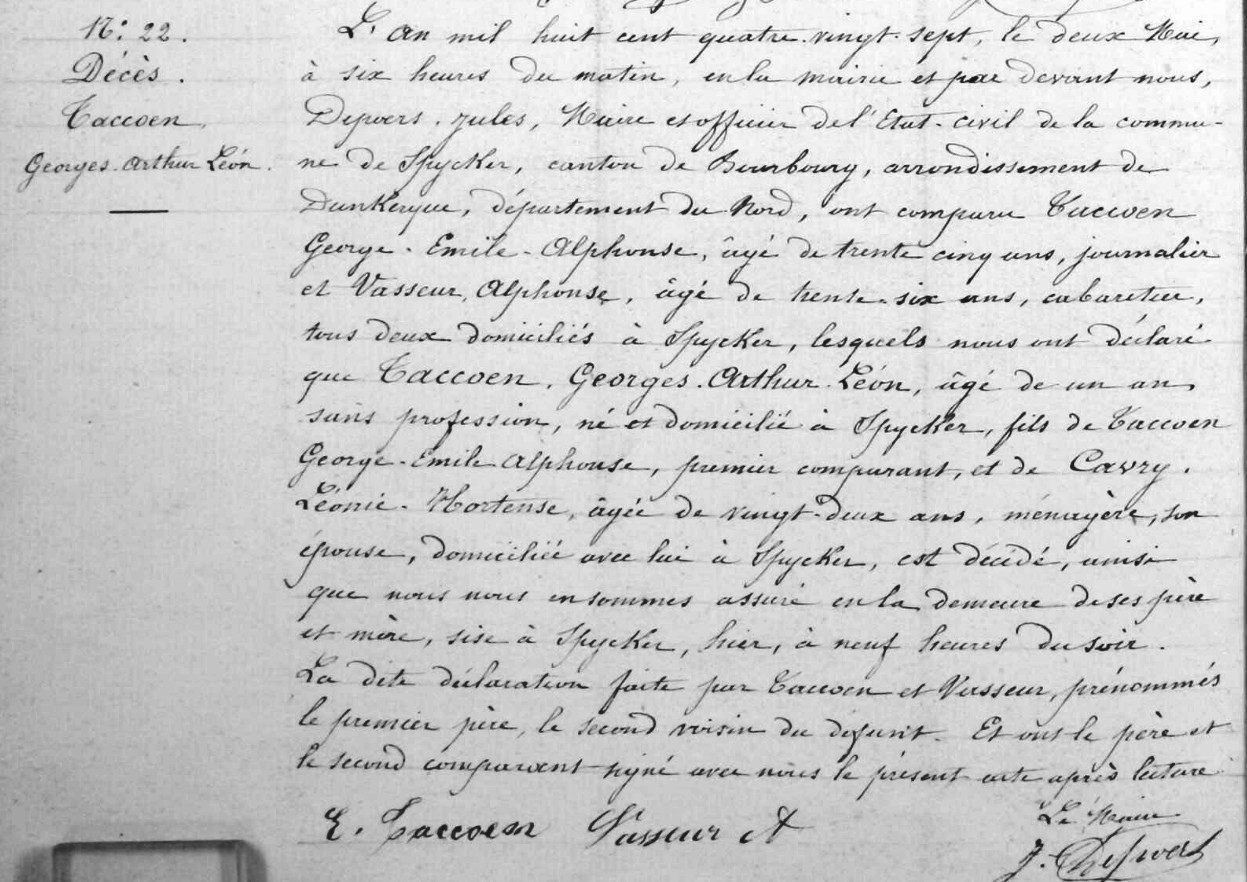 N: 22.
Décès.
Taccoen,
Georges. Arthur Léon.
L'an mil huit cent quatre-vingt-sept, le deux Mai,
à six heures du matin, en la mairie et par devant nous,
Depvers. Jules, Maire et officier de l'Etat-civil de la commu-
ne de Spycker, canton de Bourbourg, arrondissement de
Dunkerque, département du Nord, ont comparu Taccoen
George-Emile-Alphonse, âgé de trente cinq ans, journalier
et Vasseur, Alphonse, âgé de trente-six ans, cabaretier,
tous deux domiciliés à Spycker, lesquels nous ont déclaré
que Taccoen. Georges. Arthur. Léon, âgé de un an,
sans profession, né et domicilié à Spycker, fils de Taccoen
George-Emile-Alphonse, premier comparant, et de Cavry.
Léonie-Hortense, âgée de vingt-deux ans, ménagère, son
épouse, domiciliée avec lui à Spycker, est décédé, ainsi
que nous nous en sommes assuré en la demeure de ses père
et mère, sise à Spycker, hier, à neuf heures du soir.
La dite déclaration faite par Taccoen et Vasseur, prénommés
le premier père, le second voisin du défunt. Et ont le père et
le second comparant signé avec nous le présent acte après lecture
E. Taccoen Vasseur A
Le Maire
J. Depvers